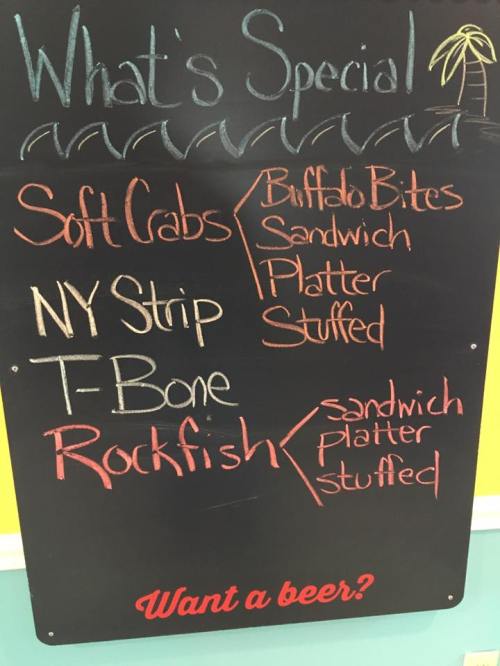 What's Special
Soft Crabs
Buffalo Bites
Sandwich
Platter
Stuffed
NY Strip
T-Bone
Rockfish
sandwich
platter
stuffed
Want a beer?